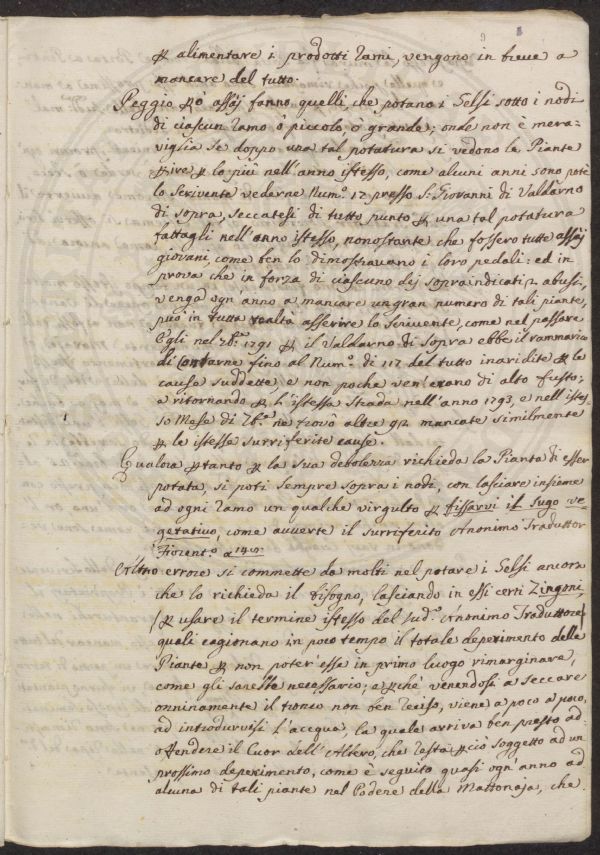 ꝑ alimentare i prodotti rami, vengono in breve a
mancare del tutto.
Peggio ꝑò assaj fanno quelli, che potano i Gelsi sotto i nodi
di ciascun ramo ò piccolo, ò grande; onde non è mera-
viglia se doppo una tal potatura si vedono le Piante
ꝑire ꝑ lo più nell'anno istesso, come alcuni anni sono potè
lo scrivente vederne Num.º 12 presso S. Giovanni di Valdarno
di sopra, seccatesi di tutto punto ꝑ una tal potatura
fattagli nell'anno istesso, nonostante che fossero tutte assaj
giovani, come ben lo dimostravano i loro pedali: ed in
prova che in forza di ciascuno dej sopraindicati abusi,
venga ogn'anno a mancare un gran numero di tali piante,
può in tutta realtà asserire lo scrivente, come nel passare
Egli nel 1791 ꝑ il Valdarno di Sopra ebbe il rammarico
di contarne fino al Num.º di 117 del tutto inaridite ꝑ le
cause suddette, e non poche ven'erano di alto fusto;
e ritornando ꝑ l'istessa strada nell'anno 1793, e nell'istes-
so Mese di ne trovò altre 92 mancate similmente
ꝑ le istesse surriferite cause.
Qualora ꝑtanto ꝑ la sua debolezza richieda la Pianta di esser
potata, si poti sempre sopra i nodi, con lasciare insieme
ad ogni ramo un qualche virgulto ꝑ fissarvi il sugo ve-
getativo, come avverte il surriferito Anonimo Traduttor
Fiorent.º a 140.
Altro errore si commette da molti nel potare i Gelsi ancora
che lo richieda il bisogno, lasciando in essi certi Zingoni,
(ꝑ usare il termine istesso del sud.º Anonimo Traduttore)
quali cagionano in poco tempo il totale deperimento delle
Piante ꝑ non poter'esse in primo luogo rimarginare,
come gli sarebbe necessario; e ꝑchè venendosi a seccare
onninamente il tronco non ben reciso, viene a poco a poco,
ad introdurvisi l'acqua, la quale arriva ben presto ad
offendere il Cuor dell'Albero, che resta ꝑciò soggetto ad un
prossimo deperimento, come è seguito quasi ogn'anno ad
alcuna di tali piante nel Podere della Mattonaja, che